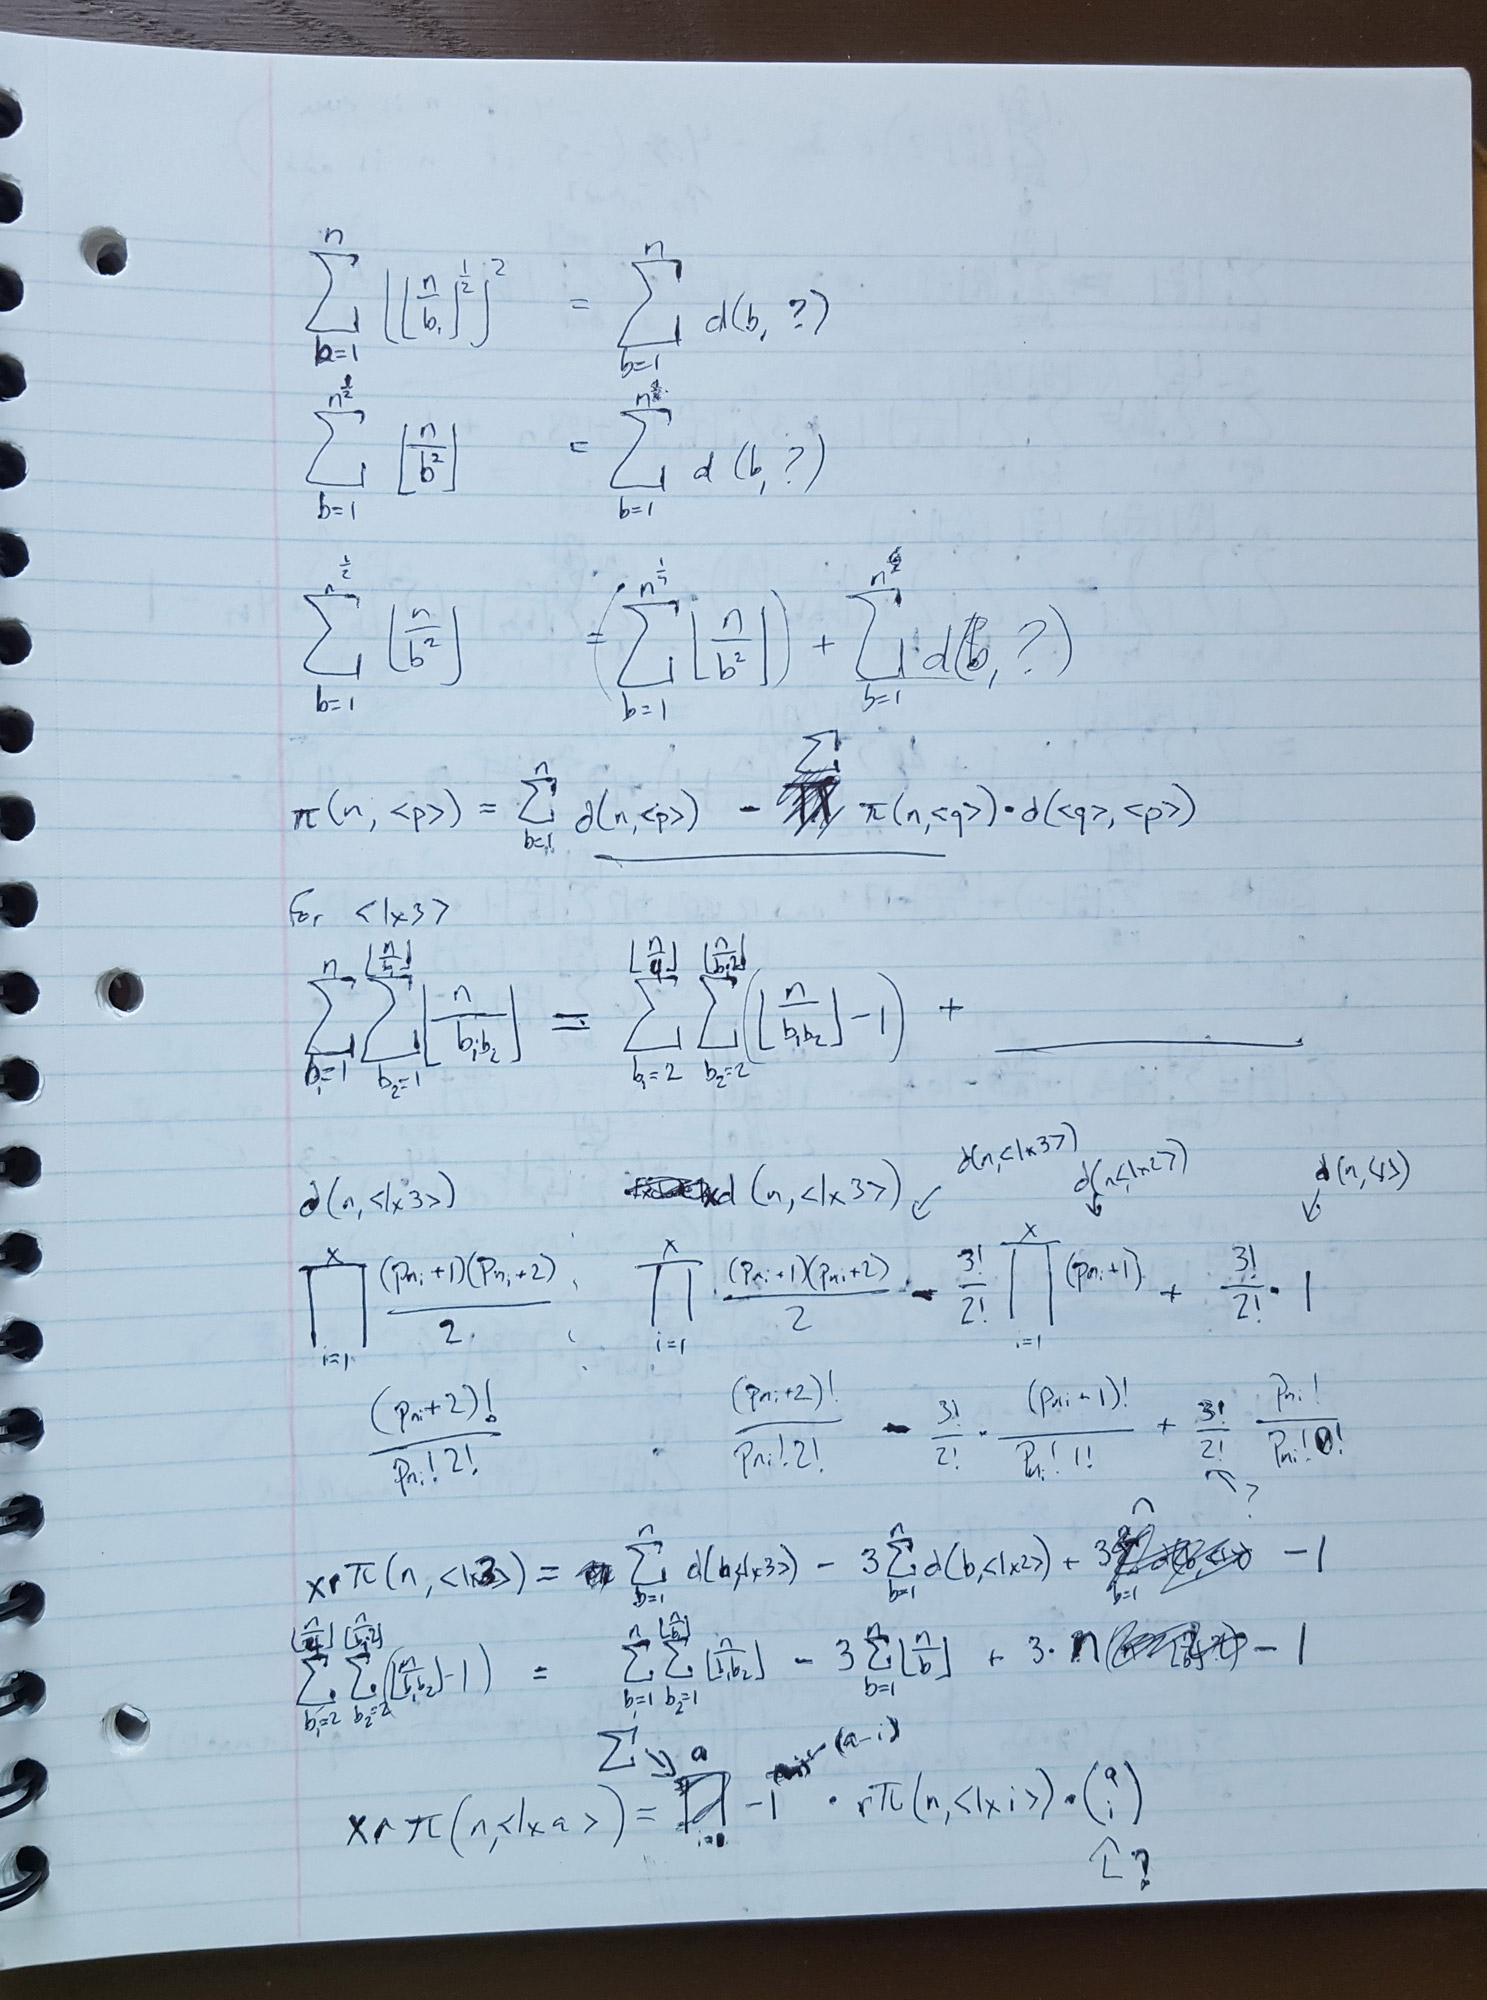 \sum_{b=1}^{n} ⌊⌊\frac{n}{b}⌋^{\frac{1}{2}}⌋^2 = \sum_{b=1}^{n} d(b, ?)
\sum_{b=1}^{n^{\frac{1}{2}}} ⌊\frac{n}{b^2}⌋ = \sum_{b=1} d(b, ?)
\sum_{b=1}^{n^{\frac{1}{2}}} ⌊\frac{n}{b^2}⌋ = (\sum_{b=1} ⌊\frac{n}{b^2}⌋) + \sum_{b=1} d(b, ?)
π(n, <p>) = \sum_{b=1}^{n} d(n,<p>) - \sum π(n,<q>)·d(<q>,<p>)
for <1x3>
\sum_{b_1=1}^{n} \sum_{b_2=1}^{⌊\frac{n}{b_1}⌋} ⌊\frac{n}{b_1b_2}⌋ = \sum_{b_1=2}^{⌊\frac{n}{4}⌋} \sum_{b_2=2}^{⌊\frac{n}{b_1 2}⌋} (⌊\frac{n}{b_1b_2}⌋-1) + ______
d(n,<1x3>) d(n,<1x2>) d(n,<1>)
d(n,<1x3>) xd(n,<1x3>) ↙ ↓ ↓
\prod_{i=1}^{x} \frac{(p_{n_i}+1)(p_{n_i}+2)}{2} \prod_{i=1}^{x} \frac{(p_{n_i}+1)(p_{n_i}+2)}{2} - \frac{3!}{2!} \prod_{i=1}^{x} (p_{n_i}+1) + \frac{3!}{2!}·1
\frac{(p_{n_i}+2)!}{p_{n_i}!2!} \frac{(p_{n_i}+2)!}{p_{n_i}!2!} - \frac{3!}{2!}·\frac{(p_{n_i}+1)!}{p_{n_i}!1!} + \frac{3!}{2!} \frac{p_{n_i}!}{p_{n_i}!0!}
↖?
xrπ(n,<1x3>) = \sum_{b=1}^{n} d(b,<1x3>) - 3\sum_{b=1}^{n} d(b,<1x2>) + 3 n -1
\sum_{b_1=2}^{⌊\frac{n}{4}⌋} \sum_{b_2=2}^{⌊\frac{n}{b_1 2}⌋} (⌊\frac{n}{b_1b_2}⌋-1) = \sum_{b_1=1}^{n} \sum_{b_2=1}^{⌊\frac{n}{b_1}⌋} ⌊\frac{n}{b_1b_2}⌋ - 3\sum_{b=1}^{n}⌊\frac{n}{b}⌋ + 3·n -1
xrπ(n,<1xa>) = \sum^{a} -1^{(a-i)} · rπ(n,<1xi>)·\binom{a}{i}
↑?